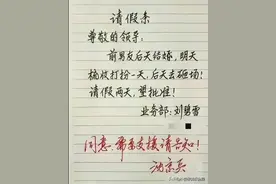 请假条
尊敬的领导:
前男友后天结婚,明天
梳妆打扮一天,后天去砸场!
请假两天,望批准!
业务部:刘碧雪
同意.需要支援请告知!
沈京兵